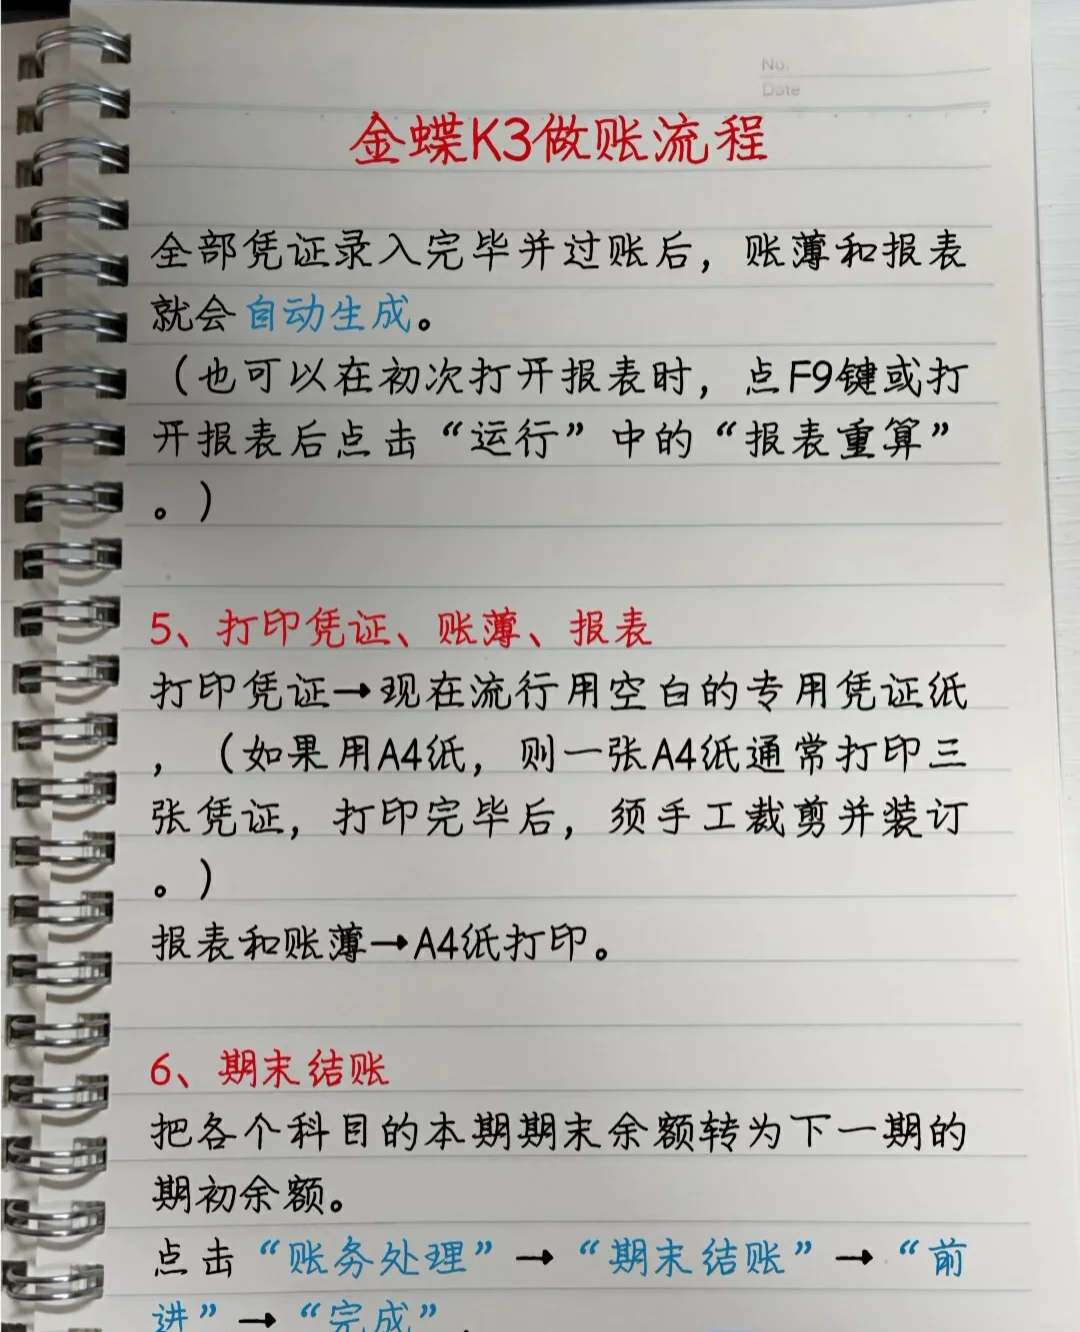 No.
Date
金蝶K3做账流程
全部凭证录入完毕并过账后，账薄和报表
就会自动生成。
（也可以在初次打开报表时，点F9键或打
开报表后点击“运行”中的“报表重算”
。）
5、打印凭证、账薄、报表
打印凭证→现在流行用空白的专用凭证纸
，（如果用A4纸，则一张A4纸通常打印三
张凭证，打印完毕后，须手工裁剪并装订
。）
报表和账薄→A4纸打印。
6、期末结账
把各个科目的本期期末余额转为下一期的
期初余额。
点击“账务处理”→“期末结账”→“前
进”→“完成”.